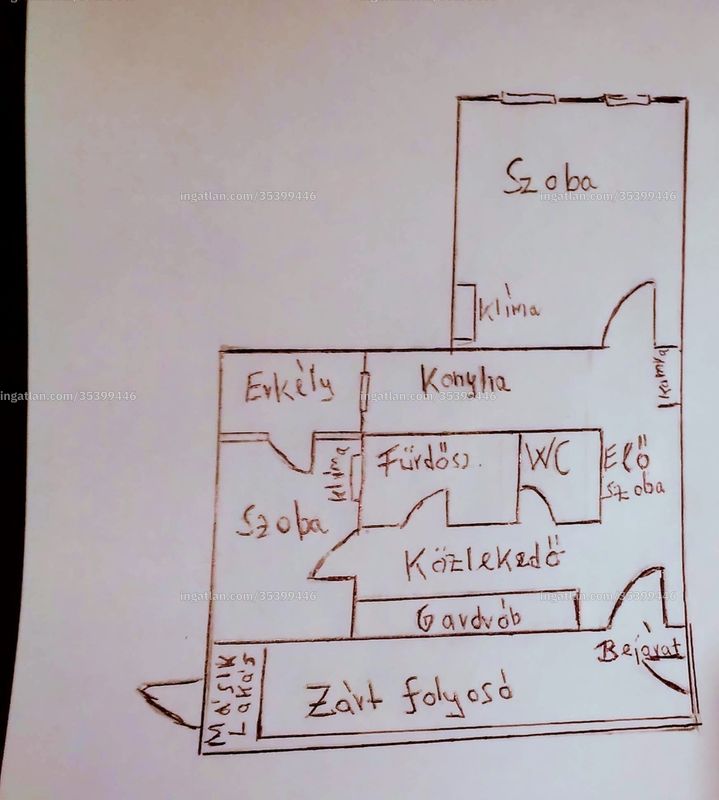 Szoba
ingatlan.com/35399446
ingatlan.com/35399446
klíma
Erkély
Konyha
Kamra
ingatlan.com/35399446
ingatlan.com/35399446
klíma
Fürdősz.
WC
Elő
szoba
Szoba
Közlekedő
ingatlan.com/35399446
ingatlan.com/35399446
Gardrób
Bejárat
Másik
Lakás
Zárt folyosó